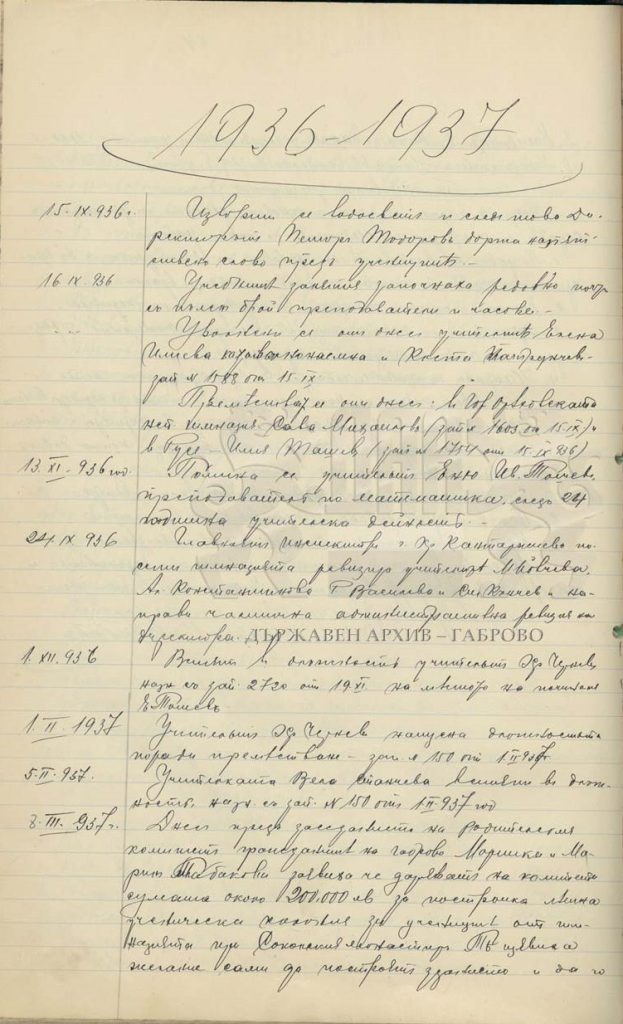 1936-1937
15. IX. 936 г. Извърши се водосвет и след това Ди-
ректорът Петър Тодоров държа
слово пред учениците. —
16 IX. 936 Учебните занятия започнаха редовно
с пълен брой преподаватели и часове. —
Уволнени са от днес учителите Елена
Илиева и Коста
зап № 1588 от 15 IX
са от днес: в Гор Оряховската
гимназия Сава Михайлов (зап № 1603 от 15 IX) и
в Русе — Илия Ташев (зап № 1754 от 15 IX 936)
13. XI. — 936 год. Помина се учительтъ Еню Ив. Тошевъ,
преподавательтъ по математика, следъ 24
годишна учителска дейность. —
24 IX 936 Главният инспекторъ г. Хр по-
сети гимназията ревизира
Ал. Константинова Г Василева и и на-
прави частична административна ревизия на
директора.
ДЪРЖАВЕН АРХИВ – ГАБРОВО
1. XII. 936 Встъпи в длъжность учительтъ
назн съ зап. 2720 от 19 XI на мястото на починалия
Е. Тошевъ.
1. II. 1937 Учительтъ напусна длъжностьта
поради преместване — зап № 150 от 1 II 937 г.
5. II. 937. Учителката Вела Станчева встъпи въ длъж-
ность. назн съ зап. № 150 от 1 II. 937 год
8. III. 937 г. Днес пред заседанието на родителския
комитет гражданите на Габрово Марийка и Ма-
рин Табакови заявиха че даряват на комитета
сумата около 200,000 лв за постройка лятна
ученическа колония за учениците от гим-
назията при Соколския монастир Те изявиха
желание сами да построят зданието и да го